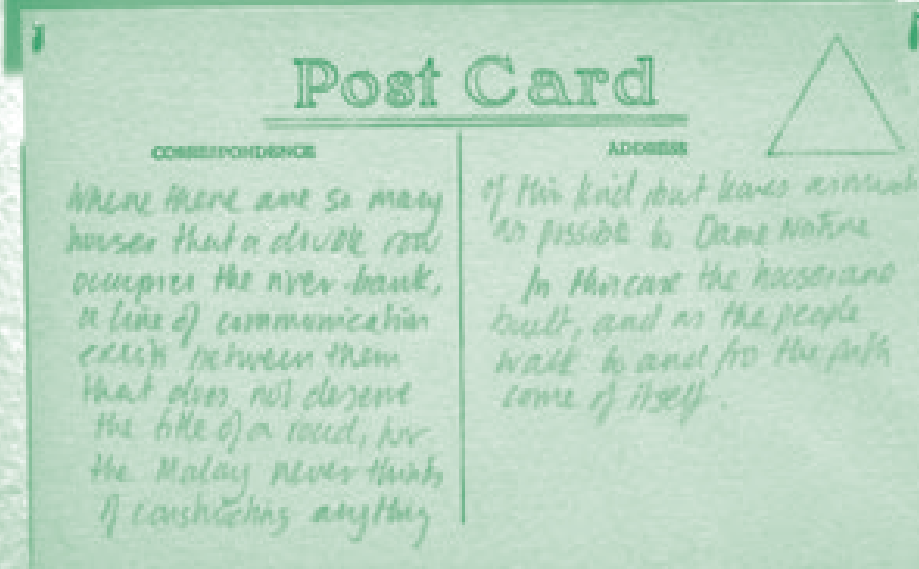 Post Card
CORRESPONDENCE
Where there are so many
houses that a double row
occupies the river-bank,
a line of communication
exists between them
that does not deserve
the title of a road, for
the Malay never thinks
of constructing anything
ADDRESS
of this kind but leaves as much
as possible to Dame Nature
In this case the houses are
built, and as the people
walk to and fro the path
come of itself.